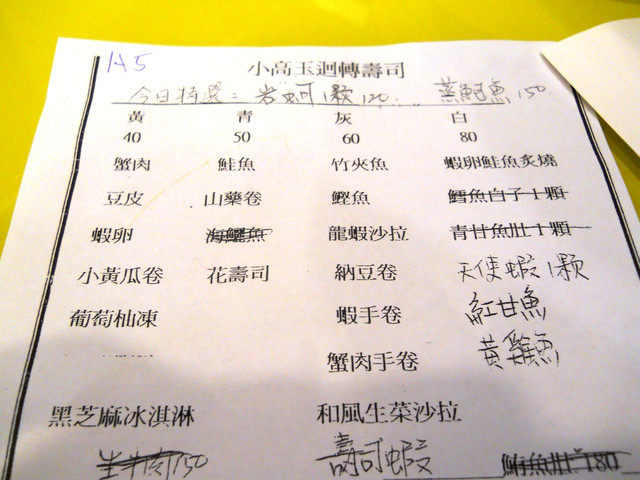 A5
小高玉迴轉壽司
今日特選：岩蚵1顆120. 蒸鮑魚150.
黃 青 灰 白
40 50 60 80
蟹肉 鮭魚 竹夾魚 蝦卵鮭魚炙燒
豆皮 山藥卷 鰹魚 鱈魚白子1顆
蝦卵 海鱺魚 龍蝦沙拉 青甘魚肚1顆
小黃瓜卷 花壽司 納豆卷 天使蝦1顆
葡萄柚凍 蝦手卷 紅甘魚
蟹肉手卷 黃雞魚
黑芝麻冰淇淋 和風生菜沙拉
生牛肉150 壽司蝦 鮪魚肚180